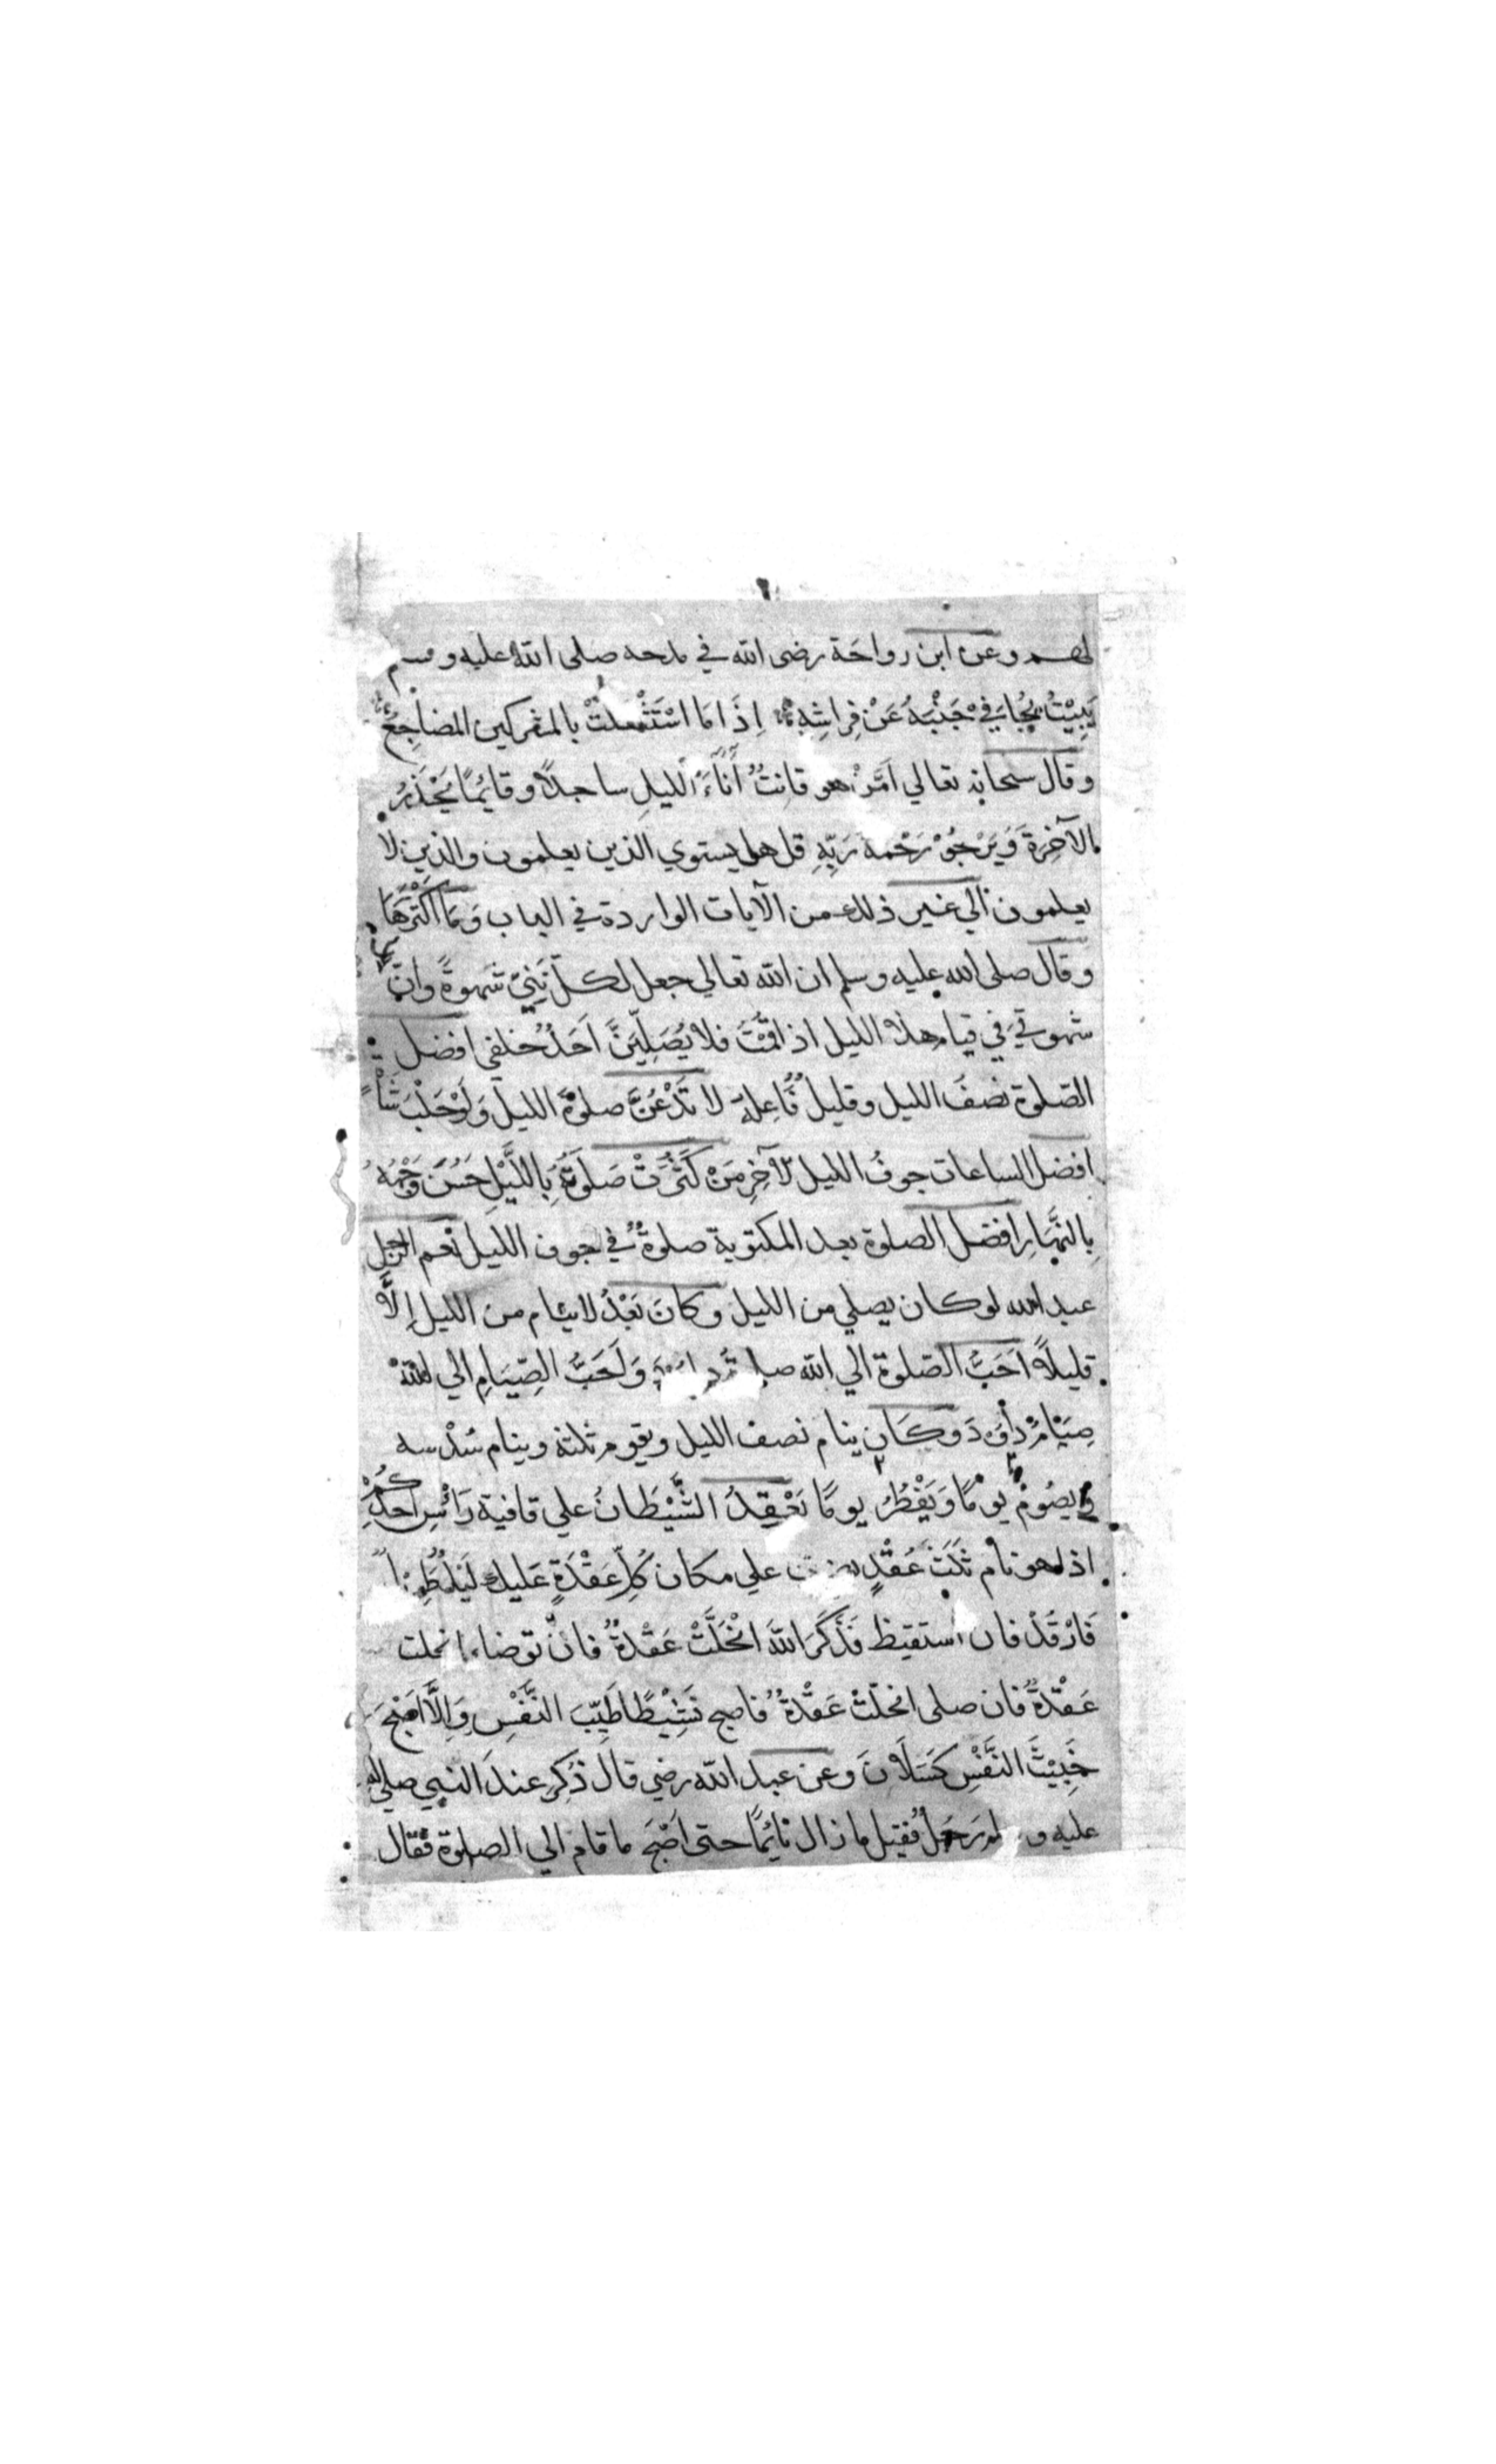 لهم وعن ابن رواحة رضى الله في مدحه صلى الله عليه وسلم
يَبِيْتُ يُجَافِيْ جَنْبَهُ عَنْ فِرَاشِهِ اِذَا مَا اسْتَثْقَلَتْ بالمشركين المضاجِعُ
وقال سبحانه تعالي اَمَّنْ هو قانِتٌ أٰنَآءَ الَّليلِ ساجدًا وقائِمًا يَحْذَرُ
الآخِرَةَ وَيَرْجُوْ رَحْمة رَبِّهِ قل هل يستوي الذين يعلمون والذين لا
يعلمون الي غير ذلك من الآيات الواردة في الباب وَمَا اَكْثَرَهَا
وقال صلى الله عليه وسلم ان الله تعالي جعل لكل نَبِيّ شهوةً وانّ
شهوتي في قيام هذا الليل اذا قُمْتُ فلا يُصَلِّيَنَّ اَحَدٌ خلفي افضل
الصّلوة نصفَ الليل وقليلٌ فَاعِلهُ لا تَدْعُنَّ صلوةَ الليل وَلَوْ حَلْبَ شَاةٍ
افضل الساعات جوفُ الليل الآخِرِ مَنْ كَثُرَتْ صَلَوتُهُ بِاللَّيْلِ حَسُنَ وَجْهُهُ
بِالنَّهَارِ افضل الصلوة بعد المكتوبة صلوةٌ في جوف الليل نعم الرجل
عبد الله لو كان يصلي من الليل وكانَ بَعْدُ لا ينام من الليل اِلَّا
قليلاً اَحَبُّ الصّلوة الي الله صلوة داود وَاَحَبُّ الصِّيَامِ الي الله
صِيَامُ دَاؤدَ وكَان ينام نصف الليل ويقوم ثلثه وينام سُدْسه
ويصُومُ يومًا وَيَفْطُرُ يومًا يَعْقِدُ الشَّيْطَانُ علي قافية رَاْسِ احدِكُمْ
اذا هو نام ثَلَثَ عُقْدٍ يضرب علي مكان كُلِّ عَقْدَةٍ عَليك لَيْلٌ طَوِيْلٌ
فَارْقُدْ فان استقيظ فَذَكَرَ اللهَ انْحَلَّتْ عَقْدةٌ فانْ توضاء انحلت
عَقْدةٌ فان صلى انحلّتْ عَقْدةٌ فاصبح نَشِيْطًا طَيِّبَ النَّفْسِ وَاِلَّا اَصْبَحَ
خَبِيْثَ النَّفْسِ كَسَلَانَ وعن عبد الله رضي قال ذُكِرَ عندَ النبي صلي الله
عليه و رَجُلٌ فقيل ما زال نائِمًا حتى اَصْبَحَ ما قام الي الصلوة فقال